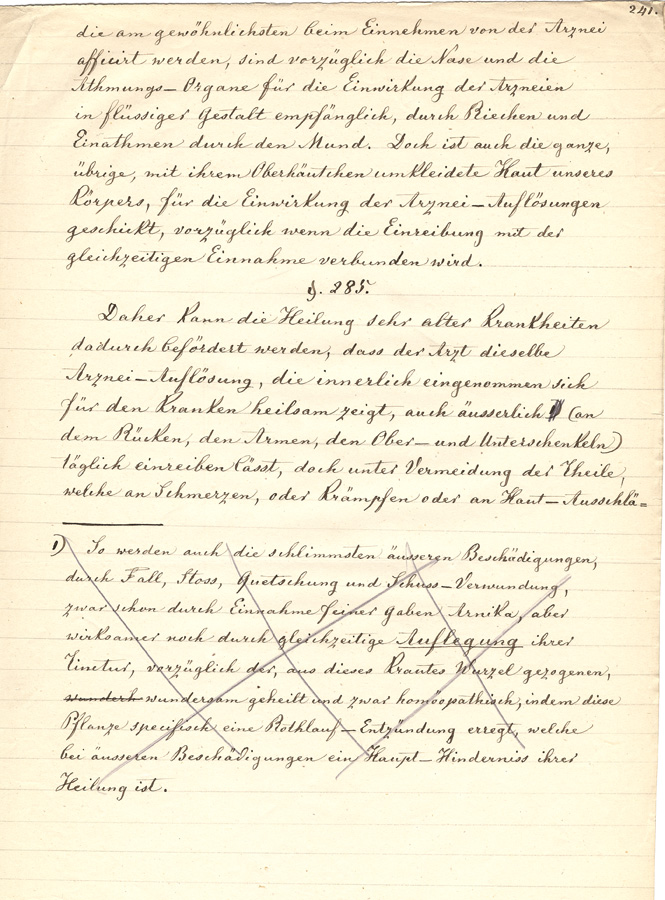 241.
die am gewöhnlichsten beim Einnehmen von der Arznei
afficirt werden, sind vorzüglich die Nase und die
Athmungs-Organe für die Einwirkung der Arzneien
in flüssiger Gestalt empfänglich, durch Riechen und
Einathmen durch den Mund. Doch ist auch die ganze,
übrige, mit ihrem Oberhäutchen umkleidete Haut unseres
Körpers, für die Einwirkung der Arznei-Auflösungen
geschickt, vorzüglich wenn die Einreibung mit der
gleichzeitigen Einnahme verbunden wird.
§. 285.
Daher kann die Heilung sehr alter Krankheiten
dadurch befördert werden, dass der Arzt dieselbe
Arznei-Auflösung, die innerlich eingenommen sich
für den Kranken heilsam zeigt, auch äusserlich (an
dem Rücken, den Armen, den Ober- und Unterschenkeln)
täglich einreiben lässt, doch unter Vermeidung der Theile,
welche an Schmerzen, oder Krämpfen oder an Haut-Ausschlä=
1) So werden auch die schlimmsten äusseren Beschädigungen,
durch Fall, Stoss, Quetschung und Schuss-Verwundung,
zwar schon durch Einnahme feiner Gaben Arnika, aber
wirksamer noch durch gleichzeitige Auflegung ihrer
Tinctur, vorzüglich der, aus dieses Krautes Wurzel gezogenen,
wunderh wundersam geheilt und zwar homöopathisch, indem diese
Pflanze specifisch eine Rothlauf-Entzündung erregt, welche
bei äusseren Beschädigungen ein Haupt-Hinderniss ihrer
Heilung ist.